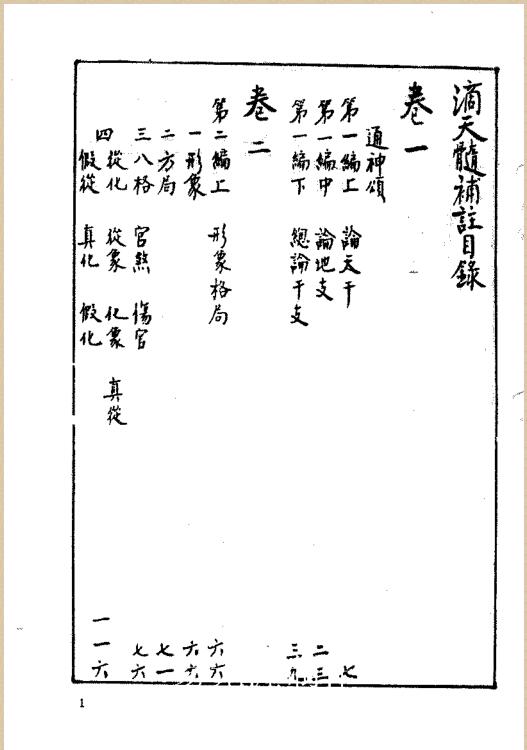 滴天髓補註目錄
卷一
通神頌
第一編上 論天干 七
第一編中 論地支 二三
第一編下 總論干支 三九
卷二
第二編上 形象格局 六六
一 形象 六六
二 方局 七一
三 八格 官煞 傷官 七六
四 從化 從象 化象 真從
假從 真化 假化 一一六
1